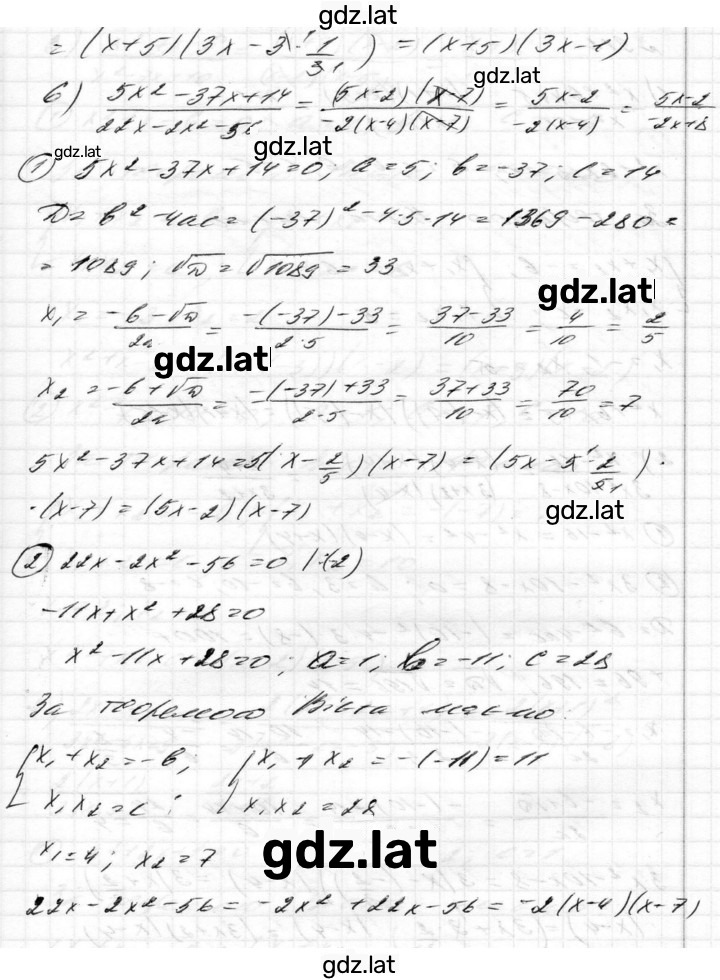 gdz.lat
= (x+5)(3x-3·1/31) = (x+5)(3x-1)
gdz.lat
б) (5x²-37x+14)/(22x-2x²-56) = ((5x-2)(x-7))/(-2(x-4)(x-7)) = (5x-2)/(-2(x-4)) = (5x-2)/(-2x+8)
gdz.lat gdz.lat
① 5x²-37x+14=0; a=5; b=-37; c=14
D=b²-4ac=(-37)²-4·5·14=1369-280=
= 1089; √D=√1089=33
gdz.lat
x₁ = (-b-√D)/2a = (-(-37)-33)/(2·5) = (37-33)/10 = 4/10 = 2/5
gdz.lat
x₂ = (-b+√D)/2a = (-(-37)+33)/(2·5) = (37+33)/10 = 70/10 = 7
5x²-37x+14=5(x-2/5)(x-7) = (5x-5¹·2/5₁)·
·(x-7)=(5x-2)(x-7)
gdz.lat
② 22x-2x²-56=0 |:(-2)
-11x+x²+28=0
x²-11x+28=0; a=1; b=-11; c=28
За теоремою Вієта маємо:
{x₁+x₂=-b; {x₁+x₂=-(-11)=11
x₁x₂=c; x₁x₂=28
x₁=4; x₂=7
gdz.lat
22x-2x²-56=-2x²+22x-56=-2(x-4)(x-7)
gdz.lat